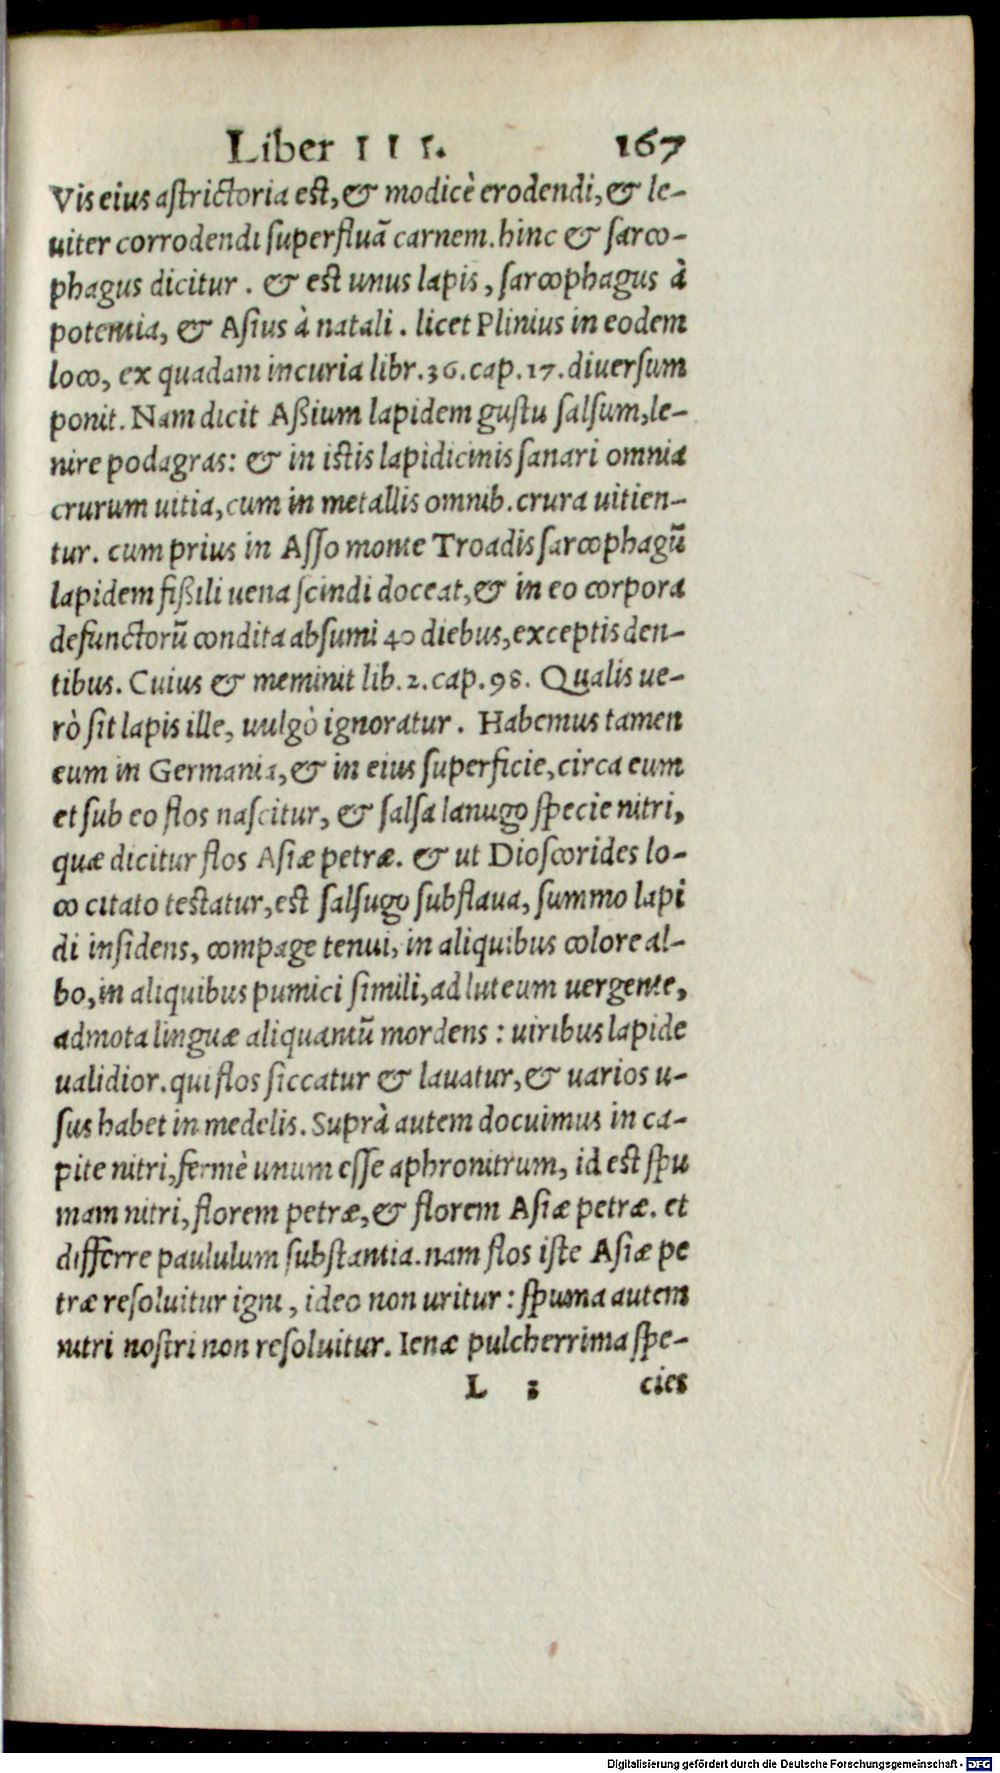 Liber III. 167
Vis eius astrictoria est, & modicè erodendi, & le-
uiter corrodendi superfluã carnem. hinc & sarco-
phagus dicitur. & est unus lapis, sarcophagus à
potentia, & Asius à natali. licet Plinius in eodem
loco, ex quadam incuria libr. 36. cap. 17. diuersum
ponit. Nam dicit Aßium lapidem gustu salsum, le-
nire podagras: & in istis lapidicinis sanari omnia
crurum uitia, cum in metallis omnib. crura uitien-
tur. cum prius in Asso monte Troadis sarcophagũ
lapidem fißili uena scindi doceat, & in eo corpora
defunctorũ condita absumi 40 diebus, exceptis den-
tibus. Cuius & meminit lib. 2. cap. 98. Qualis ue-
rò sit lapis ille, uulgò ignoratur. Habemus tamen
eum in Germania, & in eius superficie, circa eum
et sub eo flos nascitur, & salsa lanugo specie nitri,
quæ dicitur flos Asiæ petræ. & ut Dioscorides lo-
co citato testatur, est salsugo subflaua, summo lapi
di insidens, compage tenui, in aliquibus colore al-
bo, in aliquibus pumici simili, ad luteum uergente,
admota linguæ aliquantũ mordens: uiribus lapide
ualidior. qui flos siccatur & lauatur, & uarios u-
sus habet in medelis. Suprà autem docuimus in ca-
pite nitri, fermè unum esse aphronitrum, id est spu
mam nitri, florem petræ, & florem Asiæ petræ. et
differre paululum substantia. nam flos iste Asiæ pe
træ resoluitur igni, ideo non uritur: spuma autem
nitri nostri non resoluitur. Ienæ pulcherrima spe-
L 3 cies
Digitalisierung gefördert durch die Deutsche Forschungsgemeinschaft - DFG